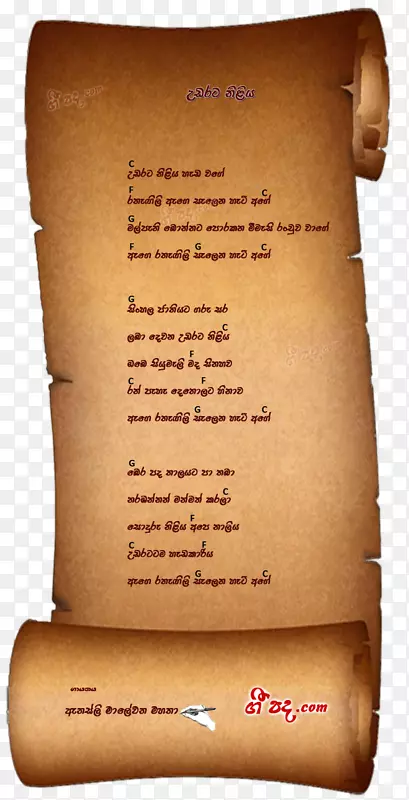 ගී පද.com
උඩරට නිළිය
C
උඩරට නිළිය හැඩ වගේ
F C
රතැඟිලි ඇගෙ සැලෙන හැටි අගේ
G
මල්පැණි බොන්නට පොරකන මීමැසි රංචුව වාගේ
F G C
ඇගෙ රතැඟිලි සැලෙන හැටි අගේ
G
සිංහල ජාතියට ගරු සර
C
ලබා දෙවන උඩරට නිළිය
F
ඔබේ සියුමැලි මද සිනහව
C F
රන් පැහැ දෙතොලට හිනාව
G C
ඇගෙ රතැඟිලි සැලෙන හැටි අගේ
G
බෙර පද තාලයට පා තබා
C
නරඹන්නන් මන්මත් කරලා
F
සොඳුරු නිළිය අපෙ නාලිය
C F
උඩරටටම හැඩකාරිය
G C
ඇගෙ රතැඟිලි සැලෙන හැටි අගේ
ගායනය
ඇනස්ලි මාලේවන මහතා
ගී පද.com